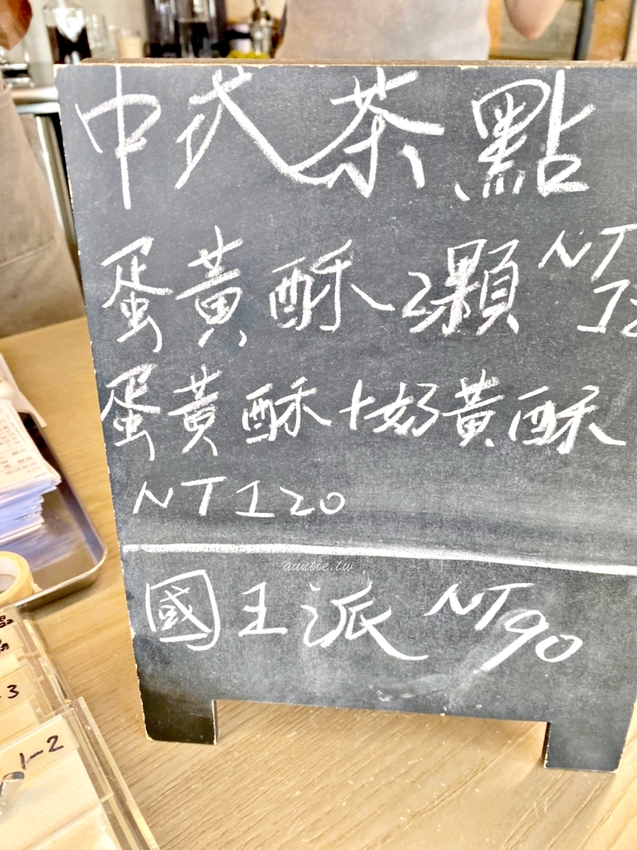 中式茶點
蛋黃酥2顆 NT
蛋黃酥+奶黃酥
NT120
auntie.tw
國王派 NT90
3
1-2